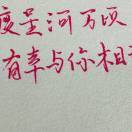 度星河万顷
有幸与你相